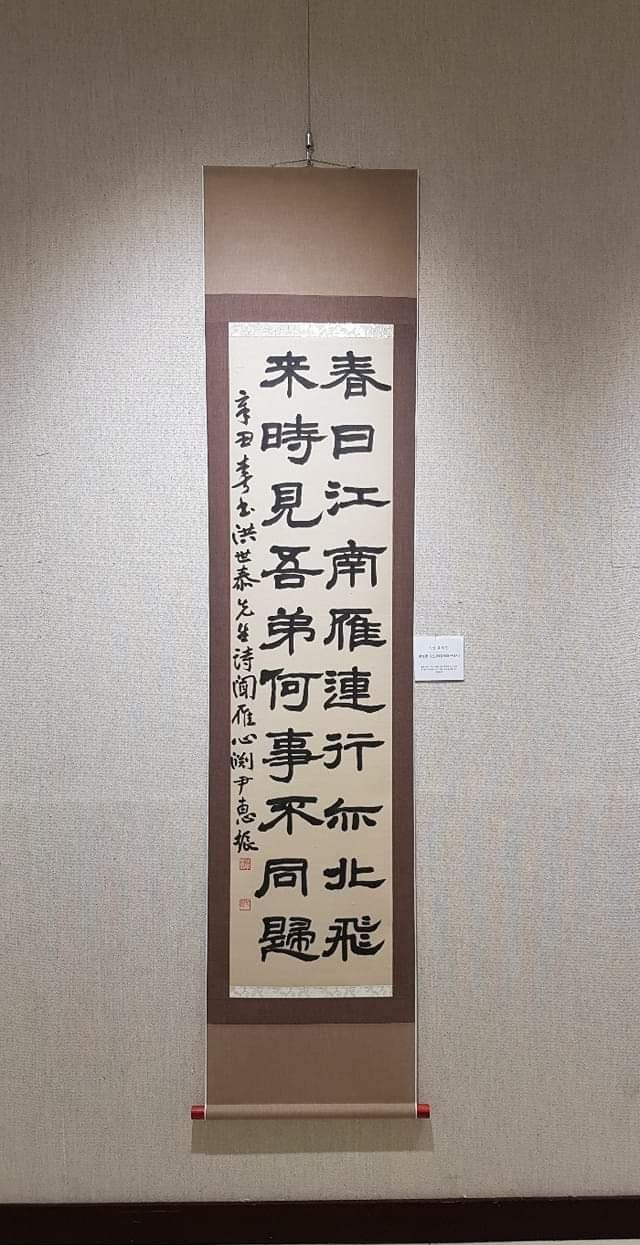 春日江南雁連行亦北飛
来時見吾弟何事不同歸
辛丑春書洪世泰先生诗闻雁心渕尹惠振